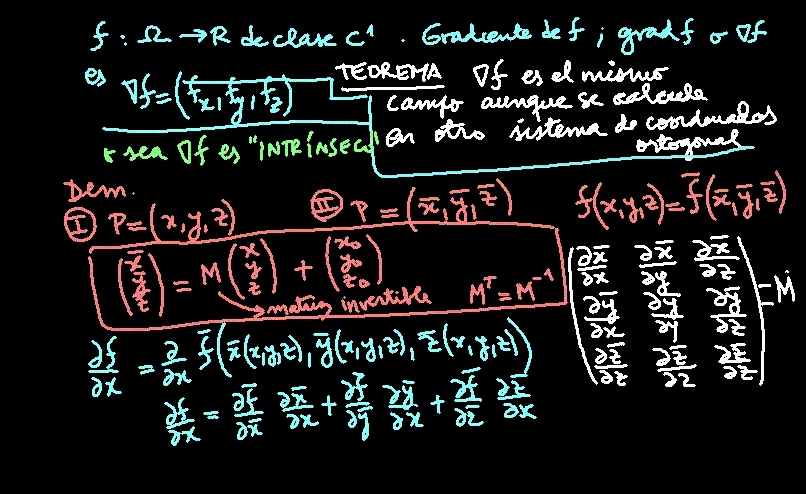 f : Ω → R de clase C¹ . Gradiente de f ; grad f o ∇f
es ∇f = (fx, fy, fz)
TEOREMA ∇f es el mismo
campo aunque se calcule
en otro sistema de coordenadas
ortogonal
o sea ∇f es "INTRÍNSECO"
Dem.
Ⅰ P = (x, y, z) Ⅱ P = (x̄, ȳ, z̄) f(x, y, z) = f̄(x̄, ȳ, z̄)
(x̄ ȳ z̄) = M (x y z) + (x₀ y₀ z₀)
→ matriz invertible Mᵀ = M⁻¹
(∂x̄/∂x ∂x̄/∂y ∂x̄/∂z
∂ȳ/∂x ∂ȳ/∂y ∂ȳ/∂z
∂z̄/∂z ∂z̄/∂z ∂z̄/∂z) = M
∂f/∂x = ∂/∂x f̄(x̄(x,y,z), ȳ(x,y,z), z̄(x,y,z))
∂f/∂x = ∂f̄/∂x̄ ∂x̄/∂x + ∂f̄/∂ȳ ∂ȳ/∂x + ∂f̄/∂z̄ ∂z̄/∂x